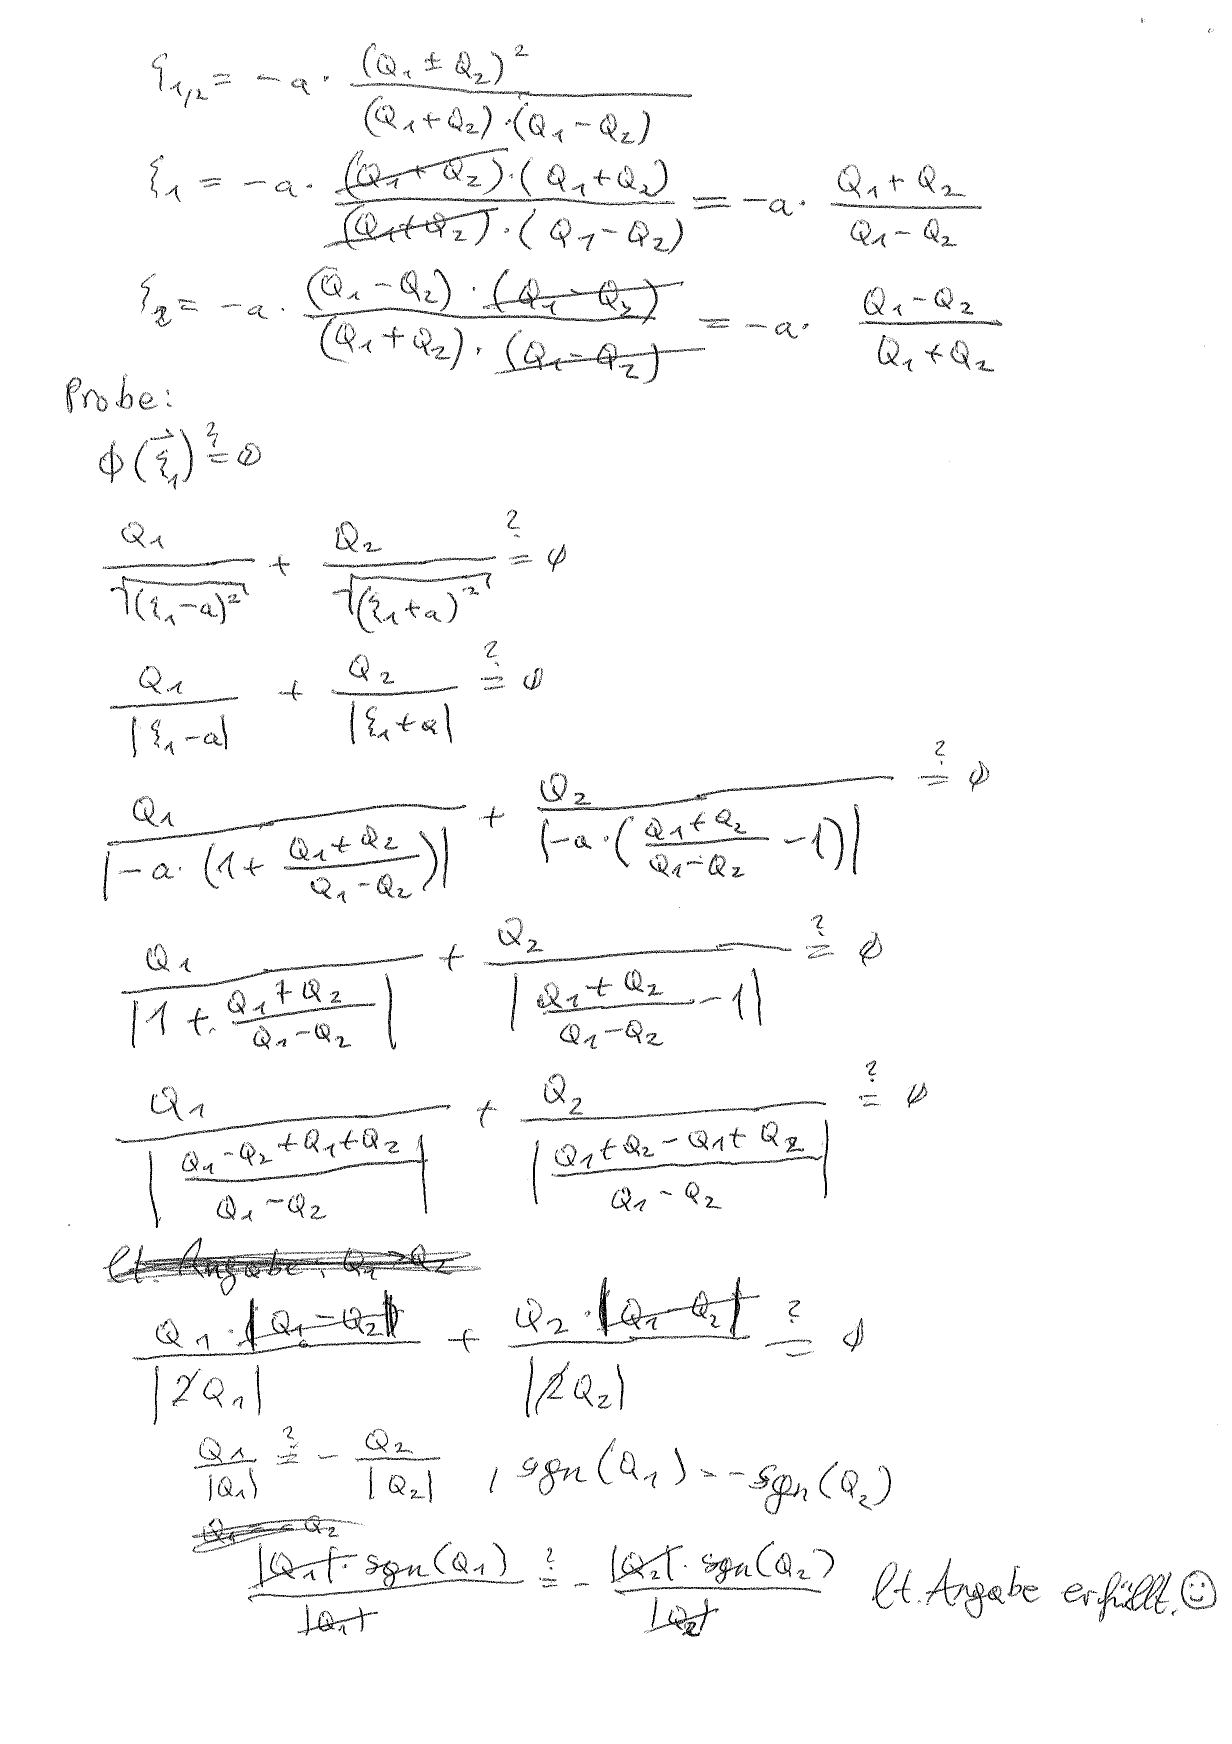 ξ₁,₂ = -a · (Q₁ ± Q₂)² / ((Q₁+Q₂)·(Q₁-Q₂))
ξ₁ = -a · ((Q₁+Q₂)·(Q₁+Q₂)) / ((Q₁+Q₂)·(Q₁-Q₂)) = -a · (Q₁+Q₂) / (Q₁-Q₂)
ξ₂ = -a · ((Q₁-Q₂)·(Q₁-Q₂)) / ((Q₁+Q₂)·(Q₁-Q₂)) = -a · (Q₁-Q₂) / (Q₁+Q₂)
Probe:
ϕ(ξ⃗₁) ≟ 0
Q₁ / √((ξ₁-a)²) + Q₂ / √((ξ₁+a)²) ≟ 0
Q₁ / |ξ₁-a| + Q₂ / |ξ₁+a| ≟ 0
Q₁ / |-a·(1 + (Q₁+Q₂)/(Q₁-Q₂))| + Q₂ / |-a·((Q₁+Q₂)/(Q₁-Q₂) - 1)| ≟ 0
Q₁ / |1 + (Q₁+Q₂)/(Q₁-Q₂)| + Q₂ / |(Q₁+Q₂)/(Q₁-Q₂) - 1| ≟ 0
Q₁ / |(Q₁-Q₂+Q₁+Q₂)/(Q₁-Q₂)| + Q₂ / |(Q₁+Q₂-Q₁+Q₂)/(Q₁-Q₂)| ≟ 0
lt. Angabe: Q₁ Q₂
Q₁·|Q₁-Q₂| / |2Q₁| + Q₂·|Q₁-Q₂| / |2Q₂| ≟ 0
Q₁/|Q₁| ≟ - Q₂/|Q₂| , sgn(Q₁) = -sgn(Q₂)
Q₁ = - Q₂
|Q₁|·sgn(Q₁) / |Q₁| ≟ - |Q₂|·sgn(Q₂) / |Q₂| lt. Angabe erfüllt. ☺